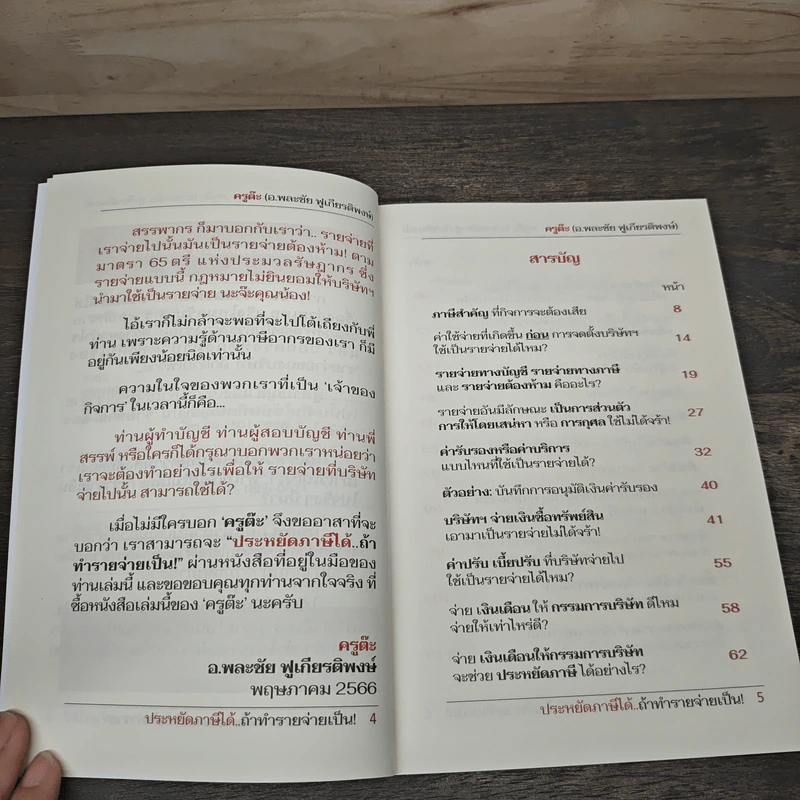 ครูต๊ะ (อ.พละชัย ฟูเกียรติพงษ์)
สรรพากร ก็มาบอกกับเราว่า.. รายจ่ายที่
เราจ่ายไปนั้นมันเป็นรายจ่ายต้องห้าม! ตาม
มาตรา 65 ตรี แห่งประมวลรัษฎากร ซึ่ง
รายจ่ายแบบนี้ กฎหมายไม่ยินยอมให้บริษัทฯ
นำมาใช้เป็นรายจ่าย นะจ๊ะคุณน้อง!
ไอ้เราก็ไม่กล้าจะพอที่จะไปโต้เถียงกับพี่
ท่าน เพราะความรู้ด้านภาษีอากรของเรา ก็มี
อยู่กันเพียงน้อยนิดเท่านั้น
ความในใจของพวกเราที่เป็น ‘เจ้าของ
กิจการ’ ในเวลานี้ก็คือ...
ท่านผู้ทำบัญชี ท่านผู้สอบบัญชี ท่านพี่
สรรพ์ หรือใครก็ได้กรุณาบอกพวกเราหน่อยว่า
เราจะต้องทำอย่างไรเพื่อให้ รายจ่ายที่บริษัท
จ่ายไปนั้น สามารถใช้ได้?
เมื่อไม่มีใครบอก ‘ครูต๊ะ’ จึงขออาสาที่จะ
บอกว่า เราสามารถจะ “ประหยัดภาษีได้..ถ้า
ทำรายจ่ายเป็น!” ผ่านหนังสือที่อยู่ในมือของ
ท่านเล่มนี้ และขอขอบคุณทุกท่านจากใจจริง ที่
ซื้อหนังสือเล่มนี้ของ ‘ครูต๊ะ’ นะครับ
ครูต๊ะ
อ.พละชัย ฟูเกียรติพงษ์
พฤษภาคม 2566
ประหยัดภาษีได้..ถ้าทำรายจ่ายเป็น! 4
ครูต๊ะ (อ.พละชัย ฟูเกียรติพงษ์)
สารบัญ
หน้า
ภาษีสำคัญ ที่กิจการจะต้องเสีย 8
ค่าใช้จ่ายที่เกิดขึ้น ก่อน การจดตั้งบริษัทฯ
ใช้เป็นรายจ่ายได้ไหม? 14
รายจ่ายทางบัญชี รายจ่ายทางภาษี
และ รายจ่ายต้องห้าม คืออะไร? 19
รายจ่ายอันมีลักษณะ เป็นการส่วนตัว
การให้โดยเสน่หา หรือ การกุศล ใช้ไม่ได้จร้า! 27
ค่ารับรองหรือค่าบริการ
แบบไหนที่ใช้เป็นรายจ่ายได้? 32
ตัวอย่าง: บันทึกการอนุมัติเงินค่ารับรอง 40
บริษัทฯ จ่ายเงินซื้อทรัพย์สิน
เอามาเป็นรายจ่ายไม่ได้จร้า! 41
ค่าปรับ เบี้ยปรับ ที่บริษัทจ่ายไป
ใช้เป็นรายจ่ายได้ไหม? 55
จ่าย เงินเดือน ให้ กรรมการบริษัท ดีไหม
จ่ายให้เท่าไหร่ดี? 58
จ่าย เงินเดือนให้กรรมการบริษัท
จะช่วย ประหยัดภาษี ได้อย่างไร? 62
ประหยัดภาษีได้..ถ้าทำรายจ่ายเป็น! 5